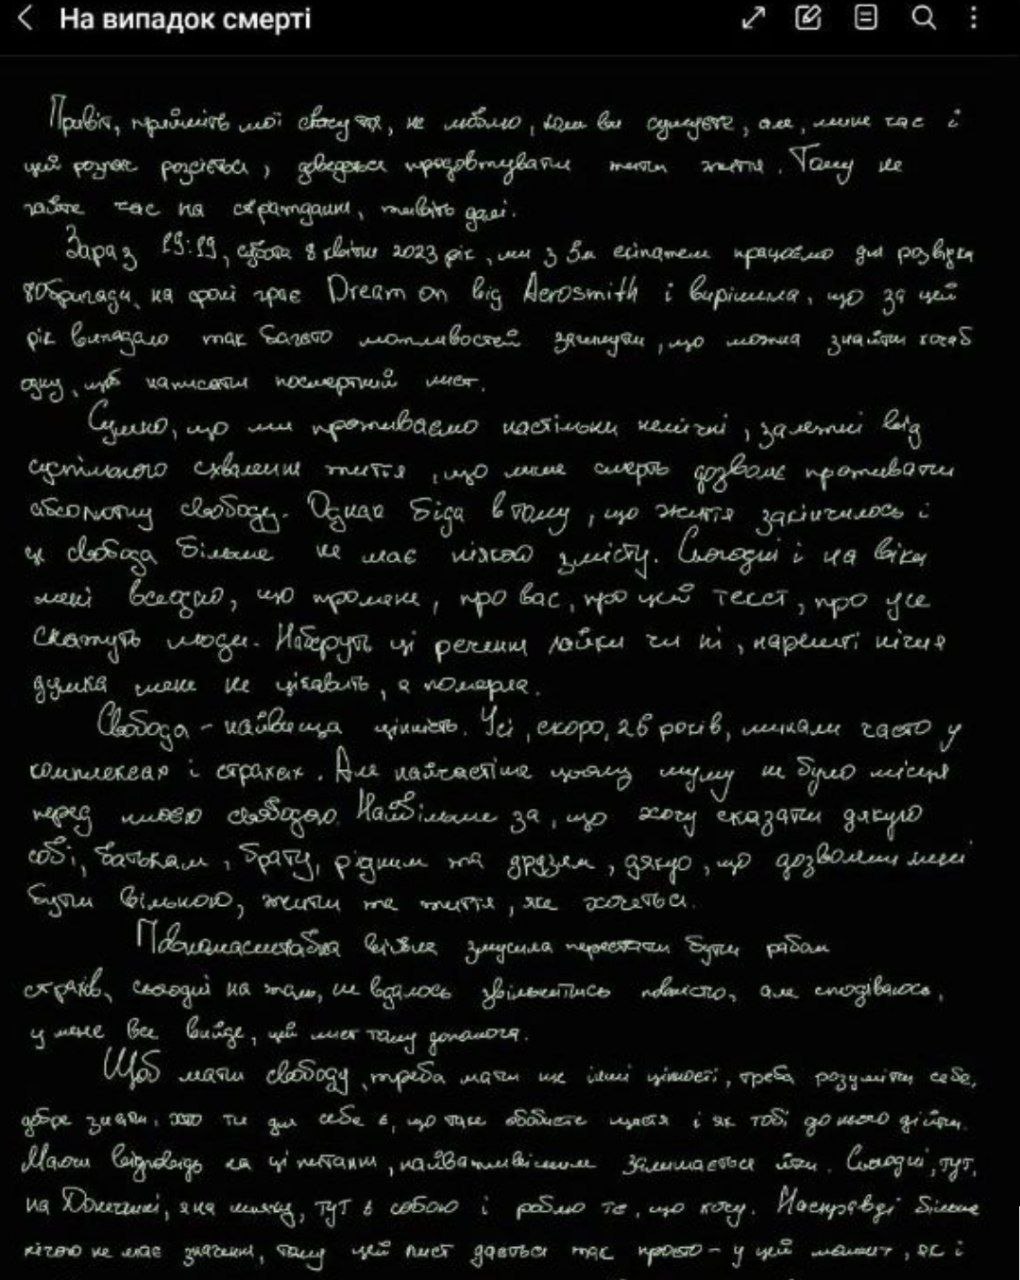 На випадок смерті
Привіт, прийміть мої співчуття, не люблю, коли ви сумуєте, але, мине час і
цей розпач розсіється, доведеться продовжувати жити життя. Тому не
гайте час на страждання, живіть далі.
Зараз 19:19, субота 8 квітня 2023 рік, ми з екіпажем працюємо для розвідки
80 бригади, на фоні грає Dream on від Aerosmith і вирішила, що за цей
рік випадало так багато можливостей загинути, що можна знайти хоча б
одну, щоб написати посмертний лист.
Сумно, що ми проживаємо настільки нелічні, залежні від
суспільного схвалення життя, що лише смерть дозволяє проживати
абсолютну свободу. Однак біда в тому, що життя закінчилось і
ця свобода більше не має ніякого змісту. Сьогодні і на віки
мені всеодно, що про мене, про вас, про цей текст, про усе
скажуть люди. Наберуть ці речення лайки чи ні, нарешті нічия
думка мене не цікавить, я померла.
Свобода - найвища цінність. Усі, скоро, 26 років, минали часто у
комплексах і страхах. Але найчастіше цьому шуму не було місця
перед моєю свободою. Найбільше за, що хочу сказати дякую
собі, батькам, брату, рідним та друзям, дякую, що дозволяли мені
бути вільною, жити те життя, яке хочеться.
Повномасштабка війна змусила перестати бути рабом
страхів, сьогодні на жаль, не вдалось звільнитись повністю, але сподіваюсь,
у мене все вийде, цей лист тому допомога.
Щоб мати свободу, треба мати ще інші цінності, треба розуміти себе,
добре знати, хто ти для себе є, що таке особисте щастя і як тобі до нього дійти.
Маючи відповідь на ці питання, найважливішим залишається йти. Сьогодні, тут,
на Донеччині, я на шляху, тут є собою і роблю те, що хочу. Насправді більше
нічого не має значення, тому цей лист дається так просто - у цей момент, як і